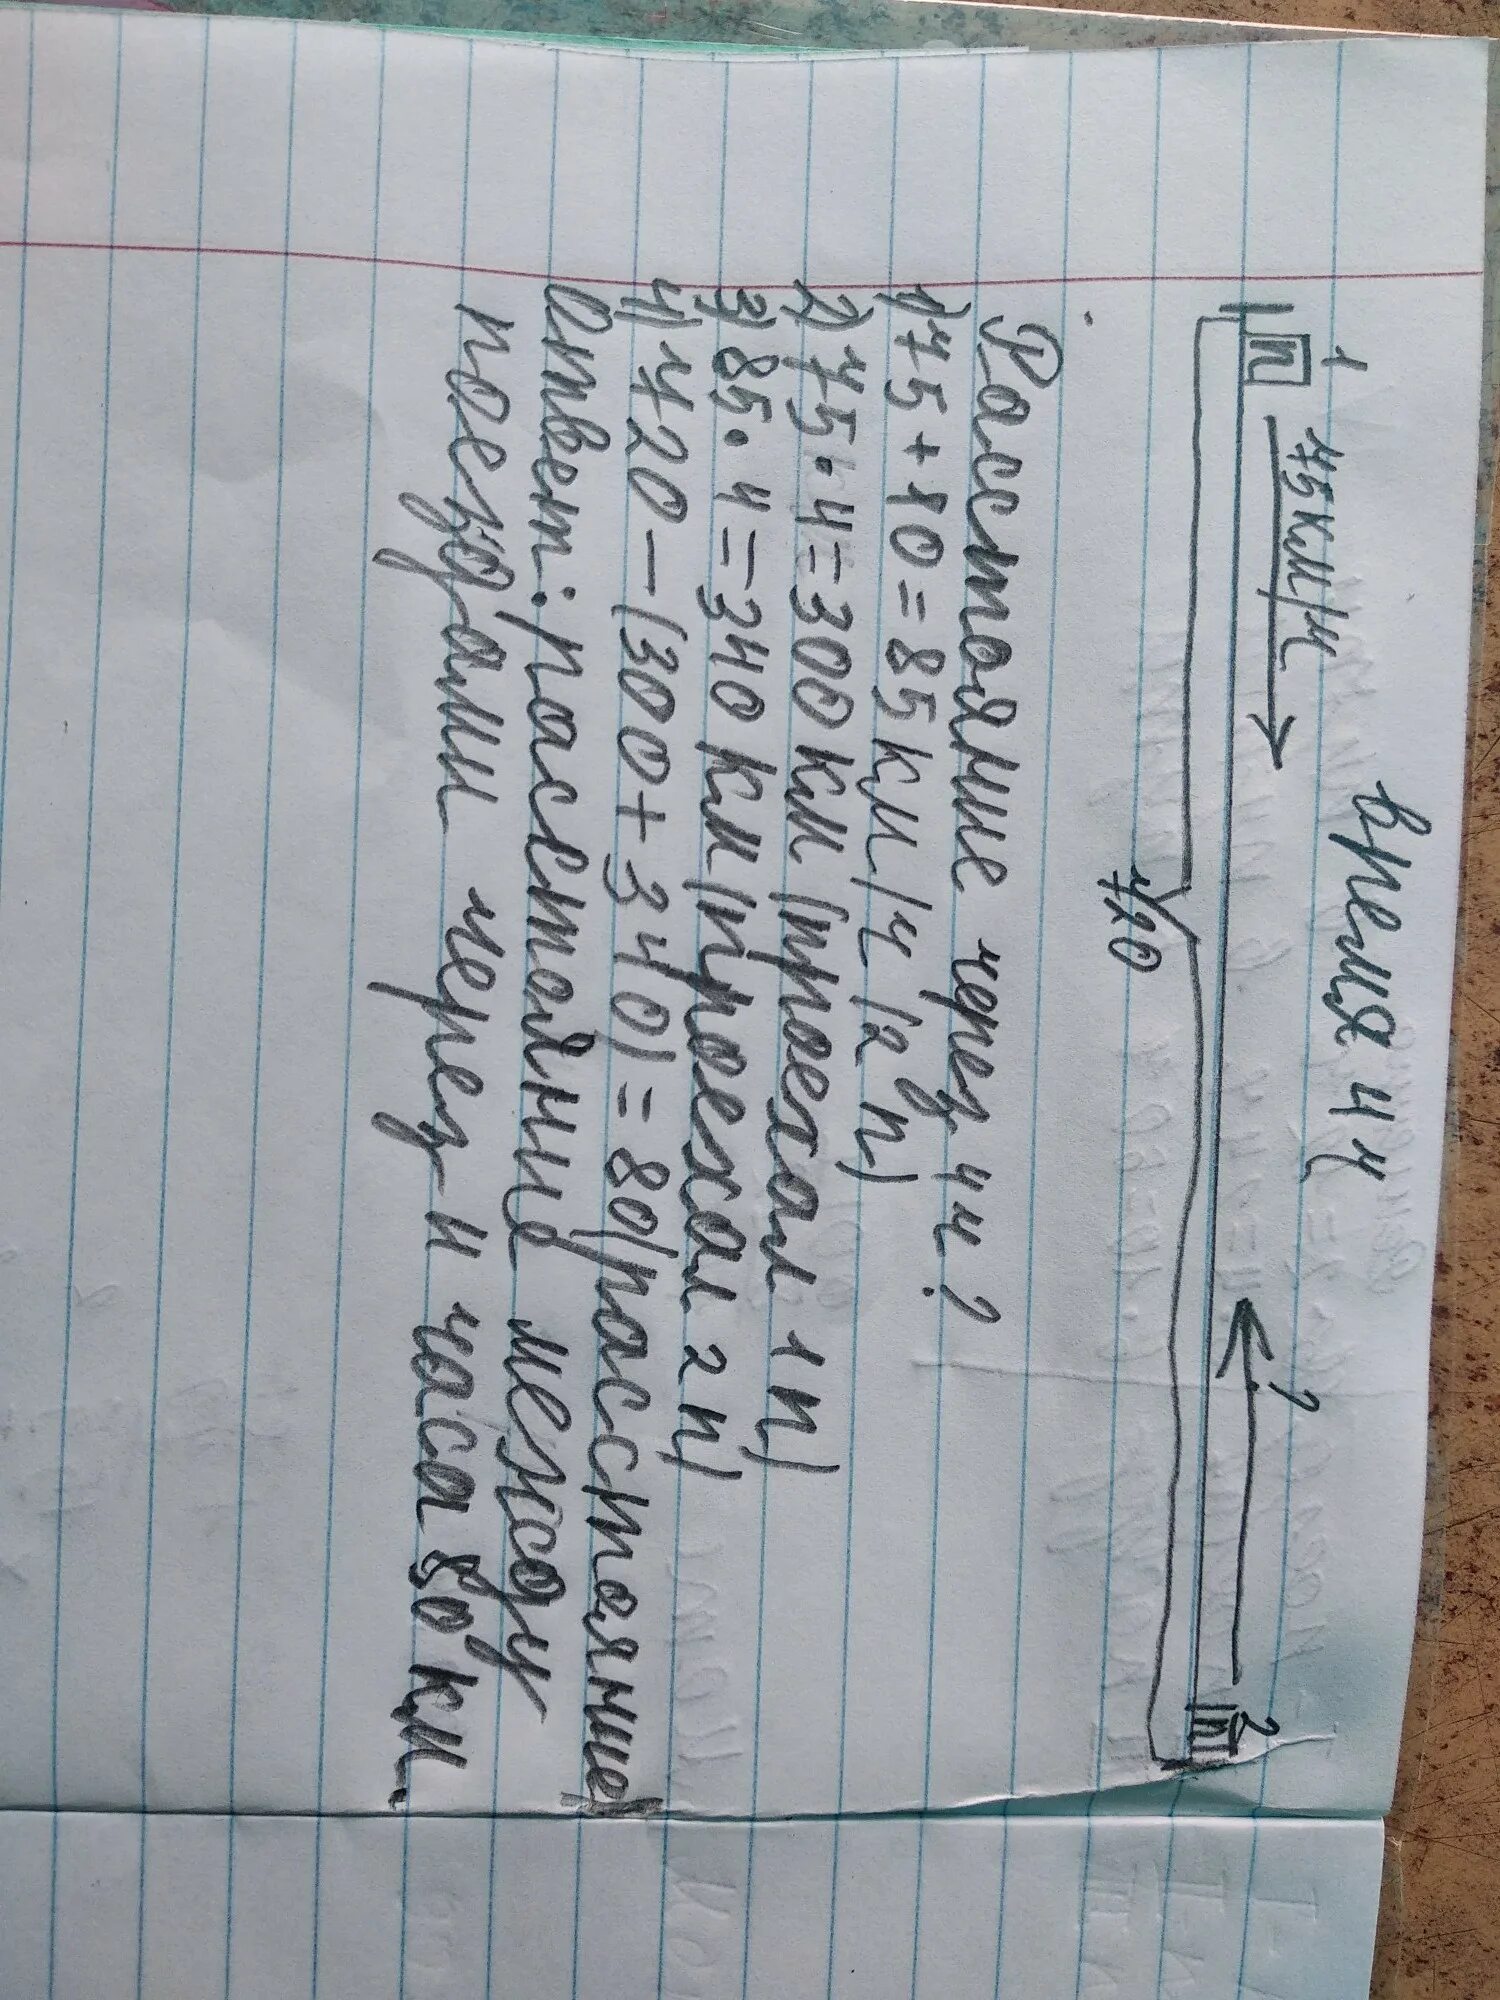 время 4 ч
1 п 75 км/ч ? 2 п
720
Расстояние через 4 ч?
1) 75 + 10 = 85 км/ч (2 п)
2) 75 · 4 = 300 км (проехал 1 п)
3) 85 · 4 = 340 км (проехал 2 п)
4) 720 - (300 + 340) = 80 (расстояние)
Ответ: расстояние между
поездами через 4 часа 80 км.